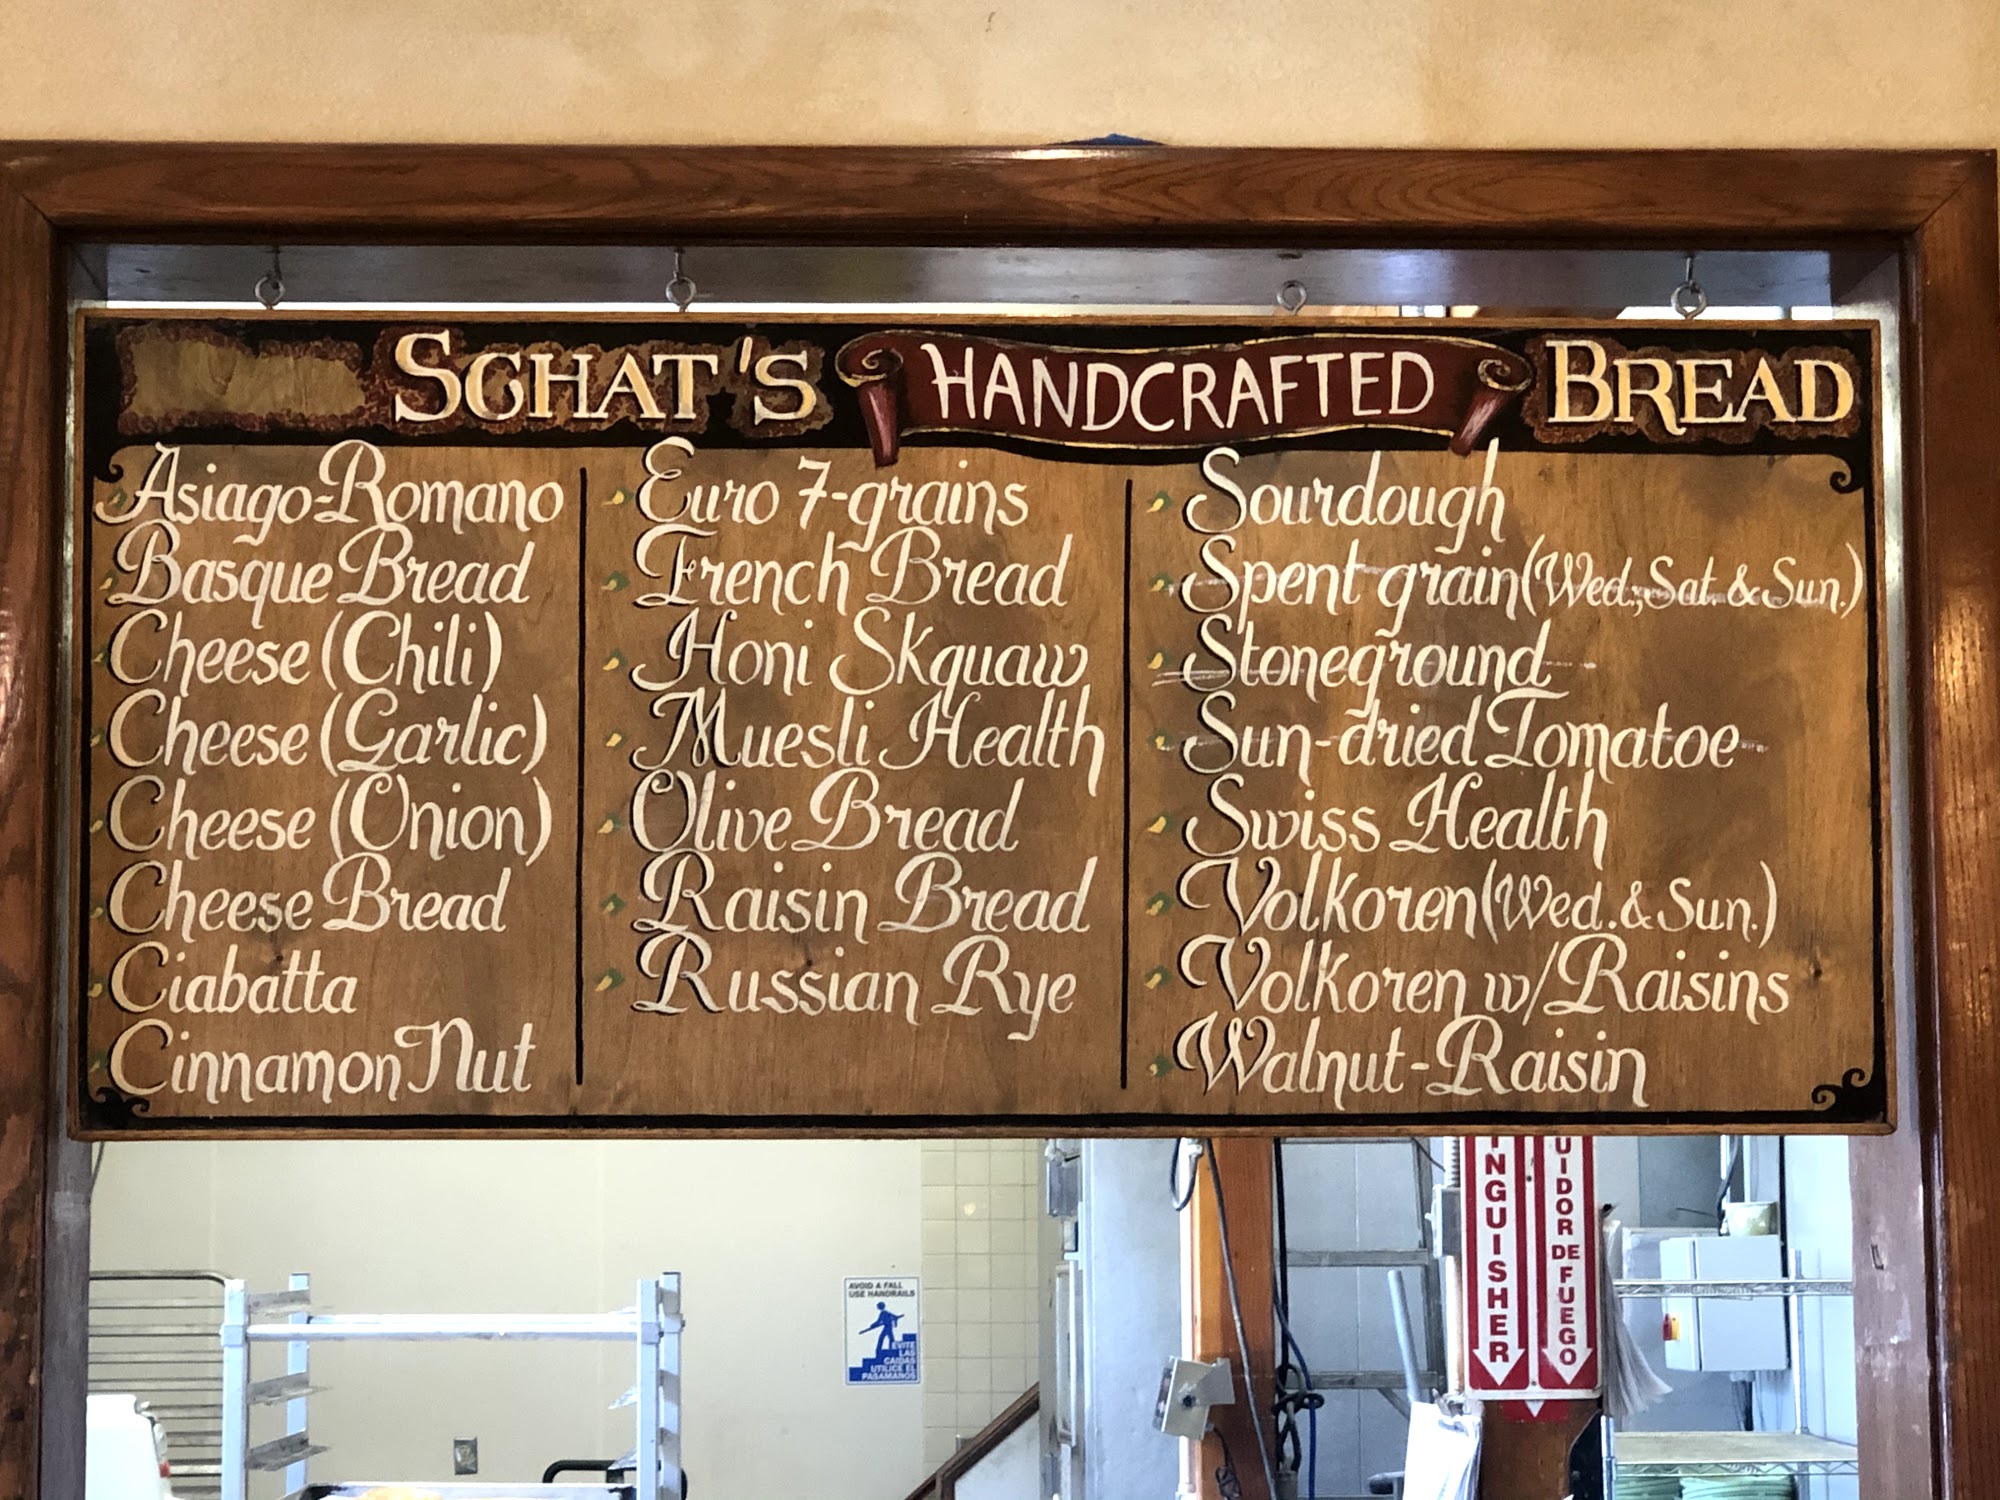 SCHAT'S HANDCRAFTED BREAD
Asiago-Romano
Basque Bread
Cheese (Chili)
Cheese (Garlic)
Cheese (Onion)
Cheese Bread
Ciabatta
Cinnamon Nut
Euro 7-grains
French Bread
Honi Skquaw
Muesli Health
Olive Bread
Raisin Bread
Russian Rye
Sourdough
Spent grain (Wed., Sat. & Sun.)
Stoneground
Sun-dried Tomatoe
Swiss Health
Volkoren (Wed. & Sun.)
Volkoren w/Raisins
Walnut-Raisin
AVOID A FALL
USE HANDRAILS
EVITE
LAS
CAIDAS
UTILICE EL
PASAMANOS
INGUISHER
UIDOR DE FUEGO